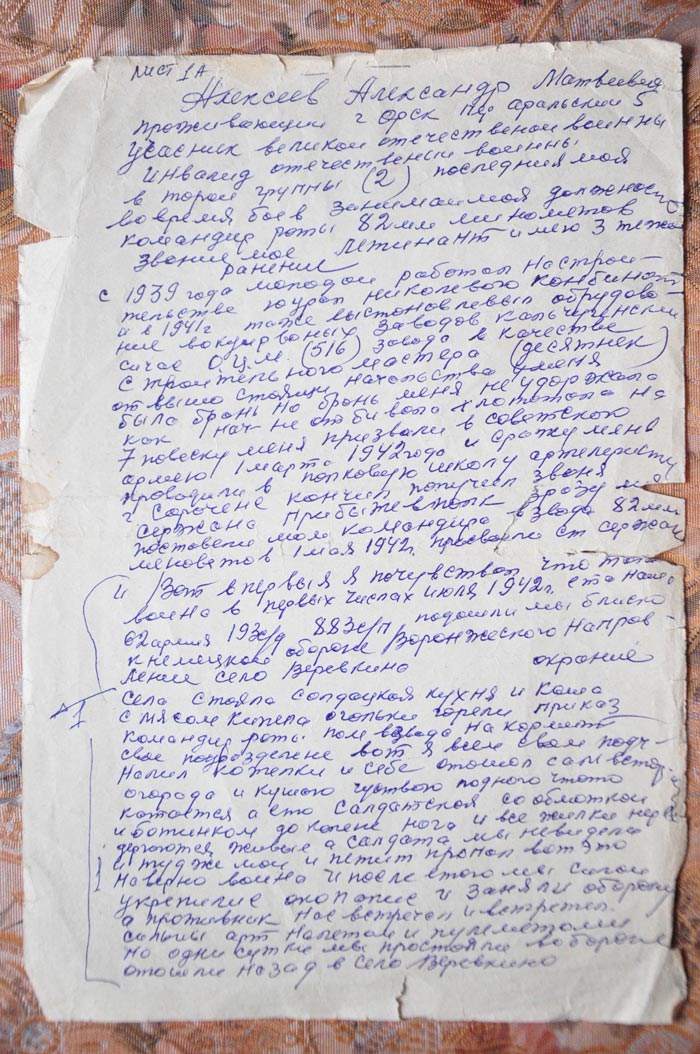 лист 1А
Алексеев Александр Матвеевич
проживающий г Орск пер Аральский 5
усасник великой отечественой воины
инвалид отечественый воины
в торой группы (2) последния моя
во время боев занимаимоя должность
командир роты 82 мм минометов
звание мое летинант имею 3 тежол
ранения
с 1939 года молодой работал на строи-
тельстве юурал николевого комбината
и в 1941 г также выстоновлевыл обрудова-
ние вокуирваных заводов Кальчегинский
сичас О.Ц.М. (516) завода в качестве
строительного мастера (десятнек)
от вышо стоящи начальства уменя
была бронь но бронь меня не удоржала
как нач не отбивала хлопотала на
7 повеску меня призвали в советскою
армею 1 марта 1942 года и сражу меня
проводили в полковую школу артелеристу
г Сорочене кончил получил званя
сержана прибыжевполк зразу мя
поставели мом командира взвода 82 мм
меноветов 1 мая 1942 г. присвоено ст сержан
и Вот в первыя я почувствовал что токо
воина в первых числах июля 1942 г. ста наша
62 армия 193 с/д 883 с/п подошли мы близко
к немецкой обороне Воронжеского направ-
ление село Веревкино охрание
села стояла солдацкая кухня и каша
с мясом кипела огоньки горели приказ
командир роты пом взвода накормит
свое подрозделене вот я всем своем подч-
налил котелки и себе отошол сам в сторну
огорода и кушаю чуствою подного чтото
катается а ето салдатской со обмоткой
и ботинком до колене нога и все жилки на ней
дергаются живые а салдата мы невидела
и туд же мои и петит пропал вот это
наверно воина и после етого мы сигои
укрепилие окопание и заняли оборону
а противник нас встречел и встретел
сильны арт налетам и пулеметами
но одни сутки мы простояли в обороне
отошли назад в село Веревкино